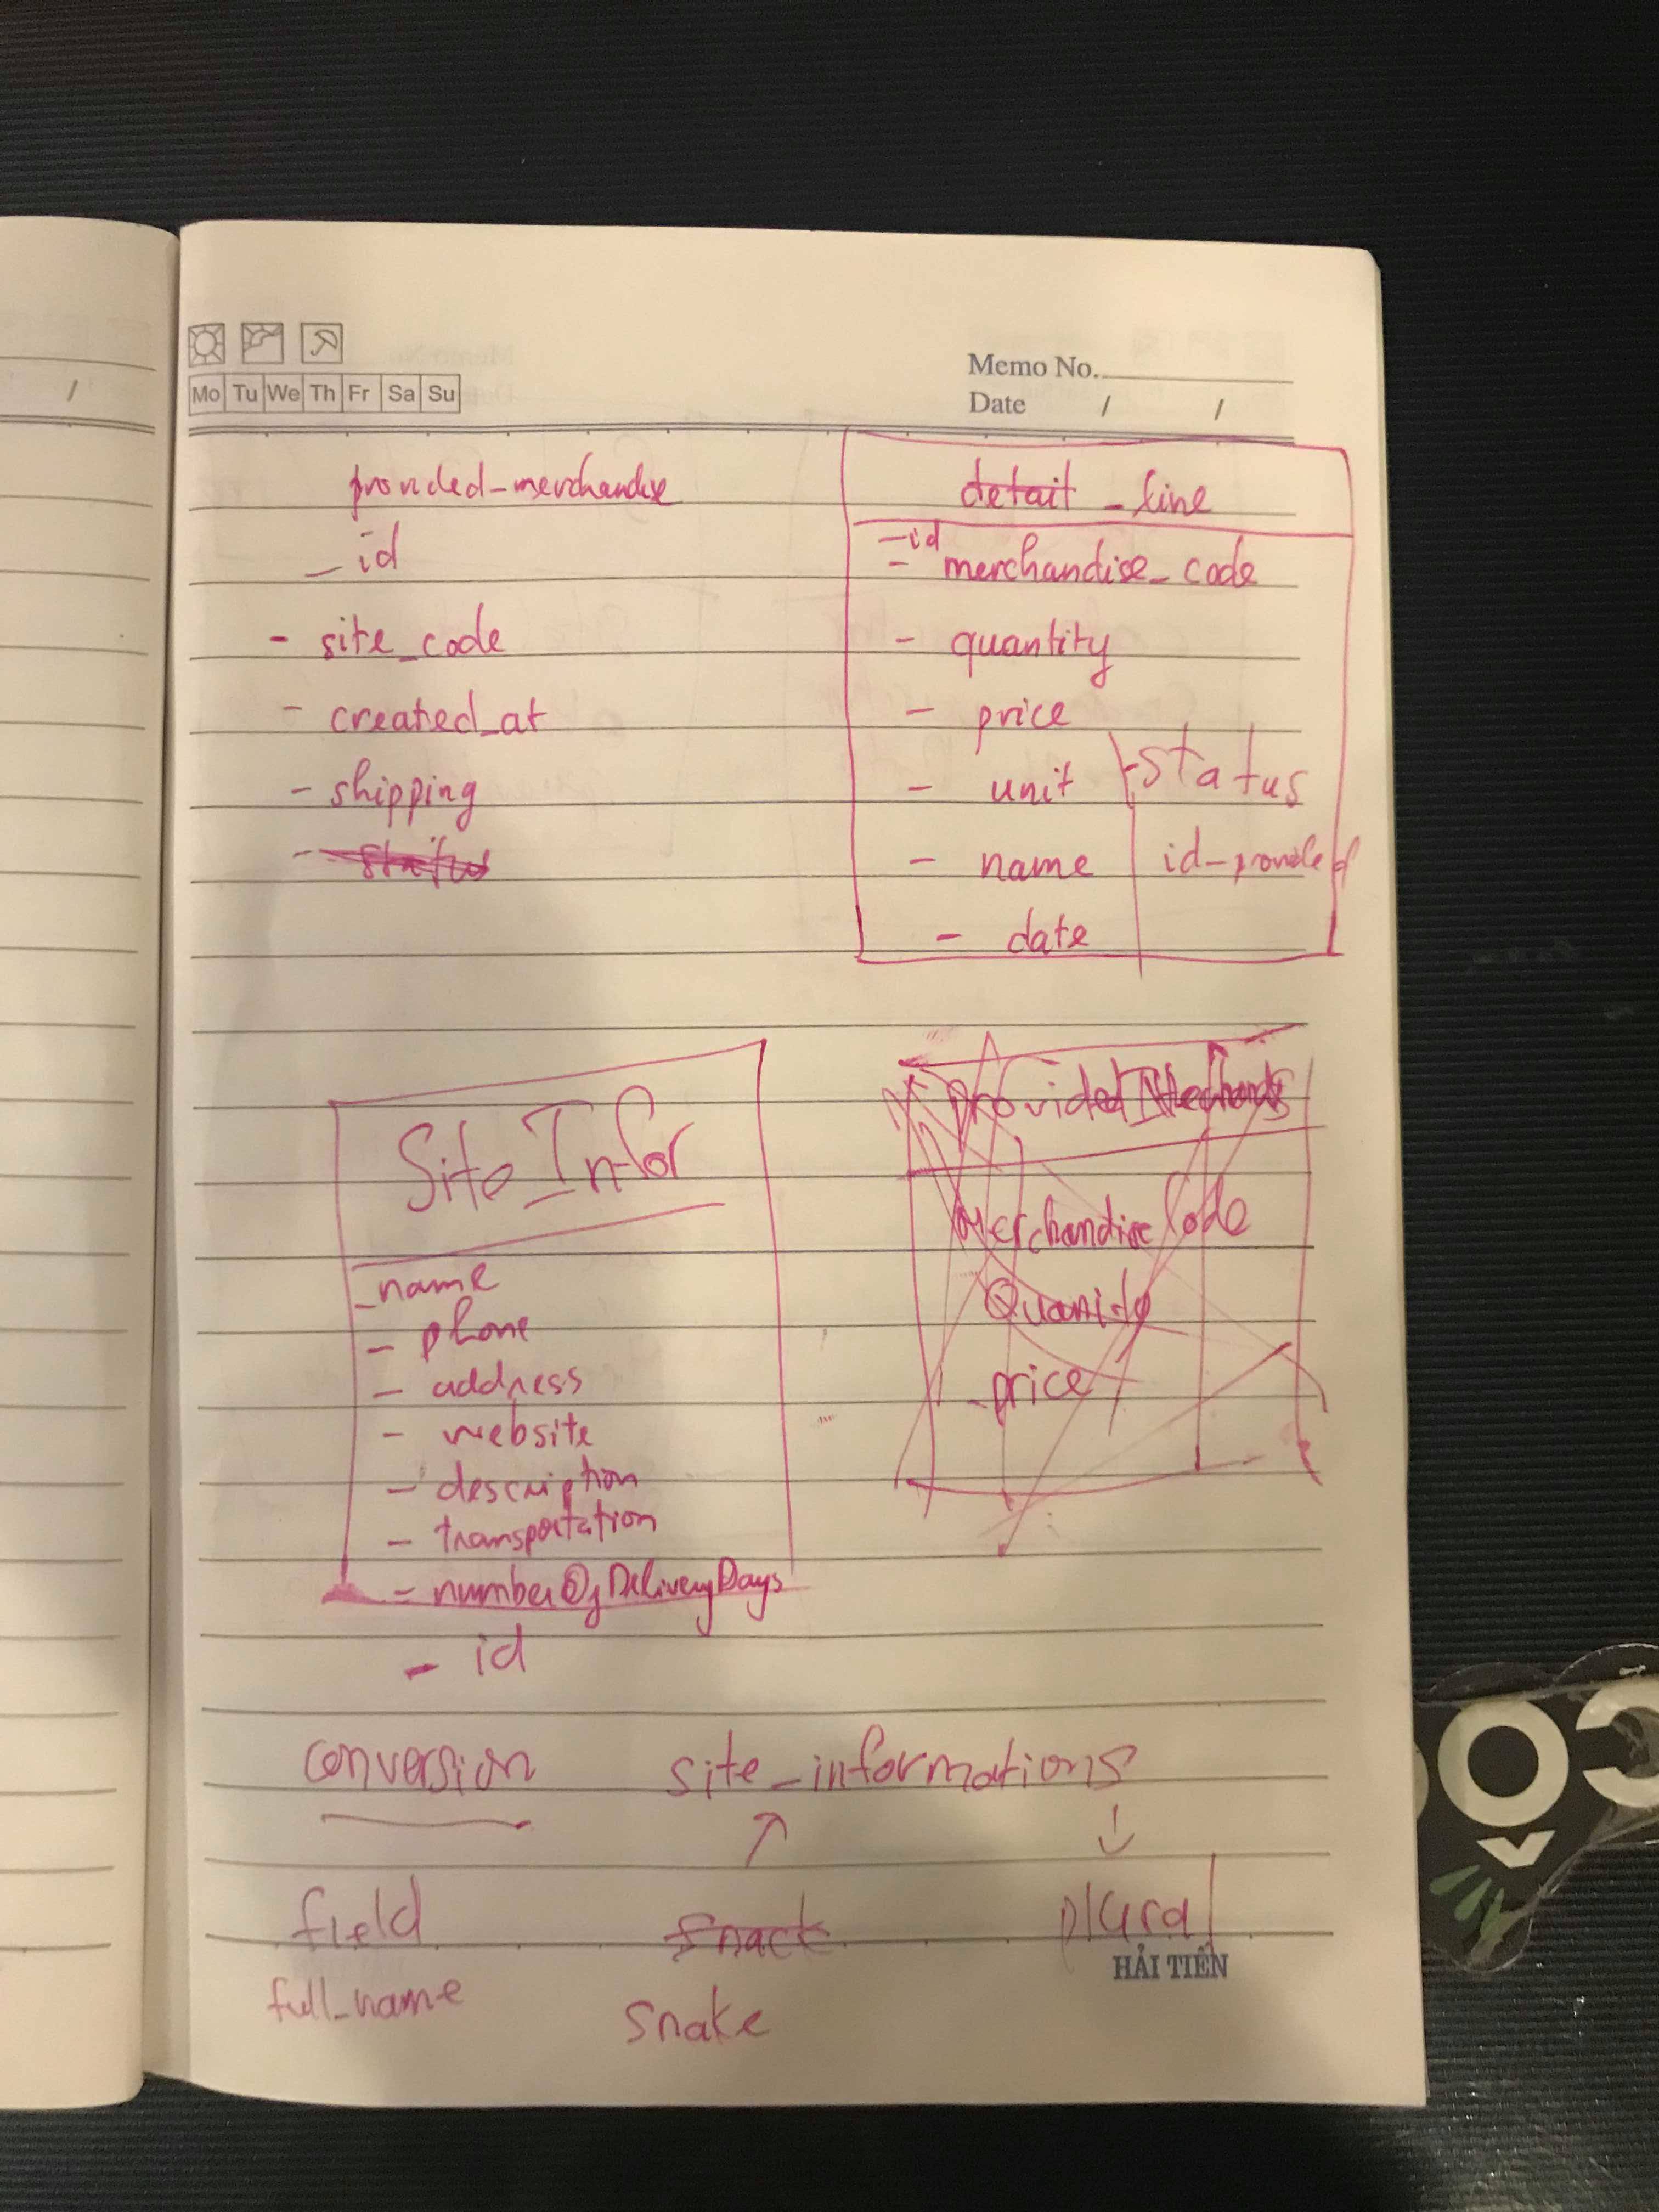 Mo Tu We Th Fr Sa Su
Memo No.
Date / /
provided_merchandise
_ id
- site_code
- created_at
- shipping
- status
detail_line
- id
- merchandise_code
- quantity
- price
- unit
- name
- date
- status
id_provided
Site Infor
- name
- phone
- address
- website
- description
- transportation
- numberOfDeliveryDays
- id
Provided
Merchandise Code
Quanity
- price
conversion
site_informations
field
snack
plural
full_name
snake
HẢI TIẾN